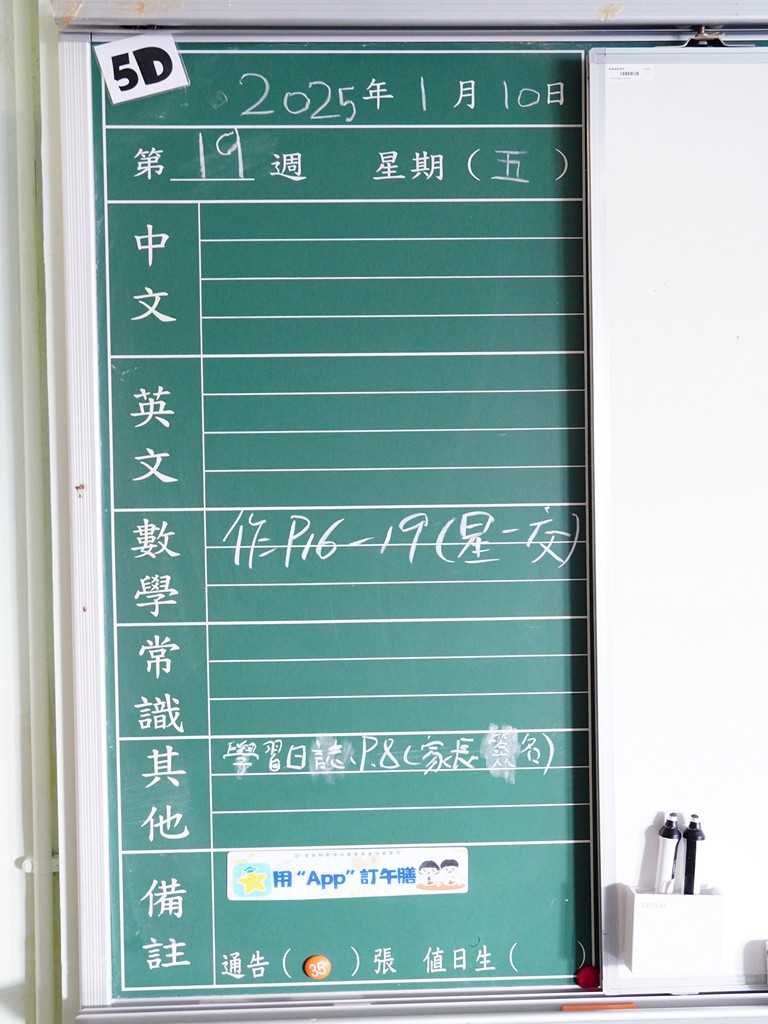 5D
2025年1月10日
第 19 週 星期（五）
中文
英文
數學 作P.16-19(星一交)
常識
其他 學習日誌P.8(家長簽名)
備註
用“App”訂午膳
通告（ ）張 值日生（ ）
EPSON